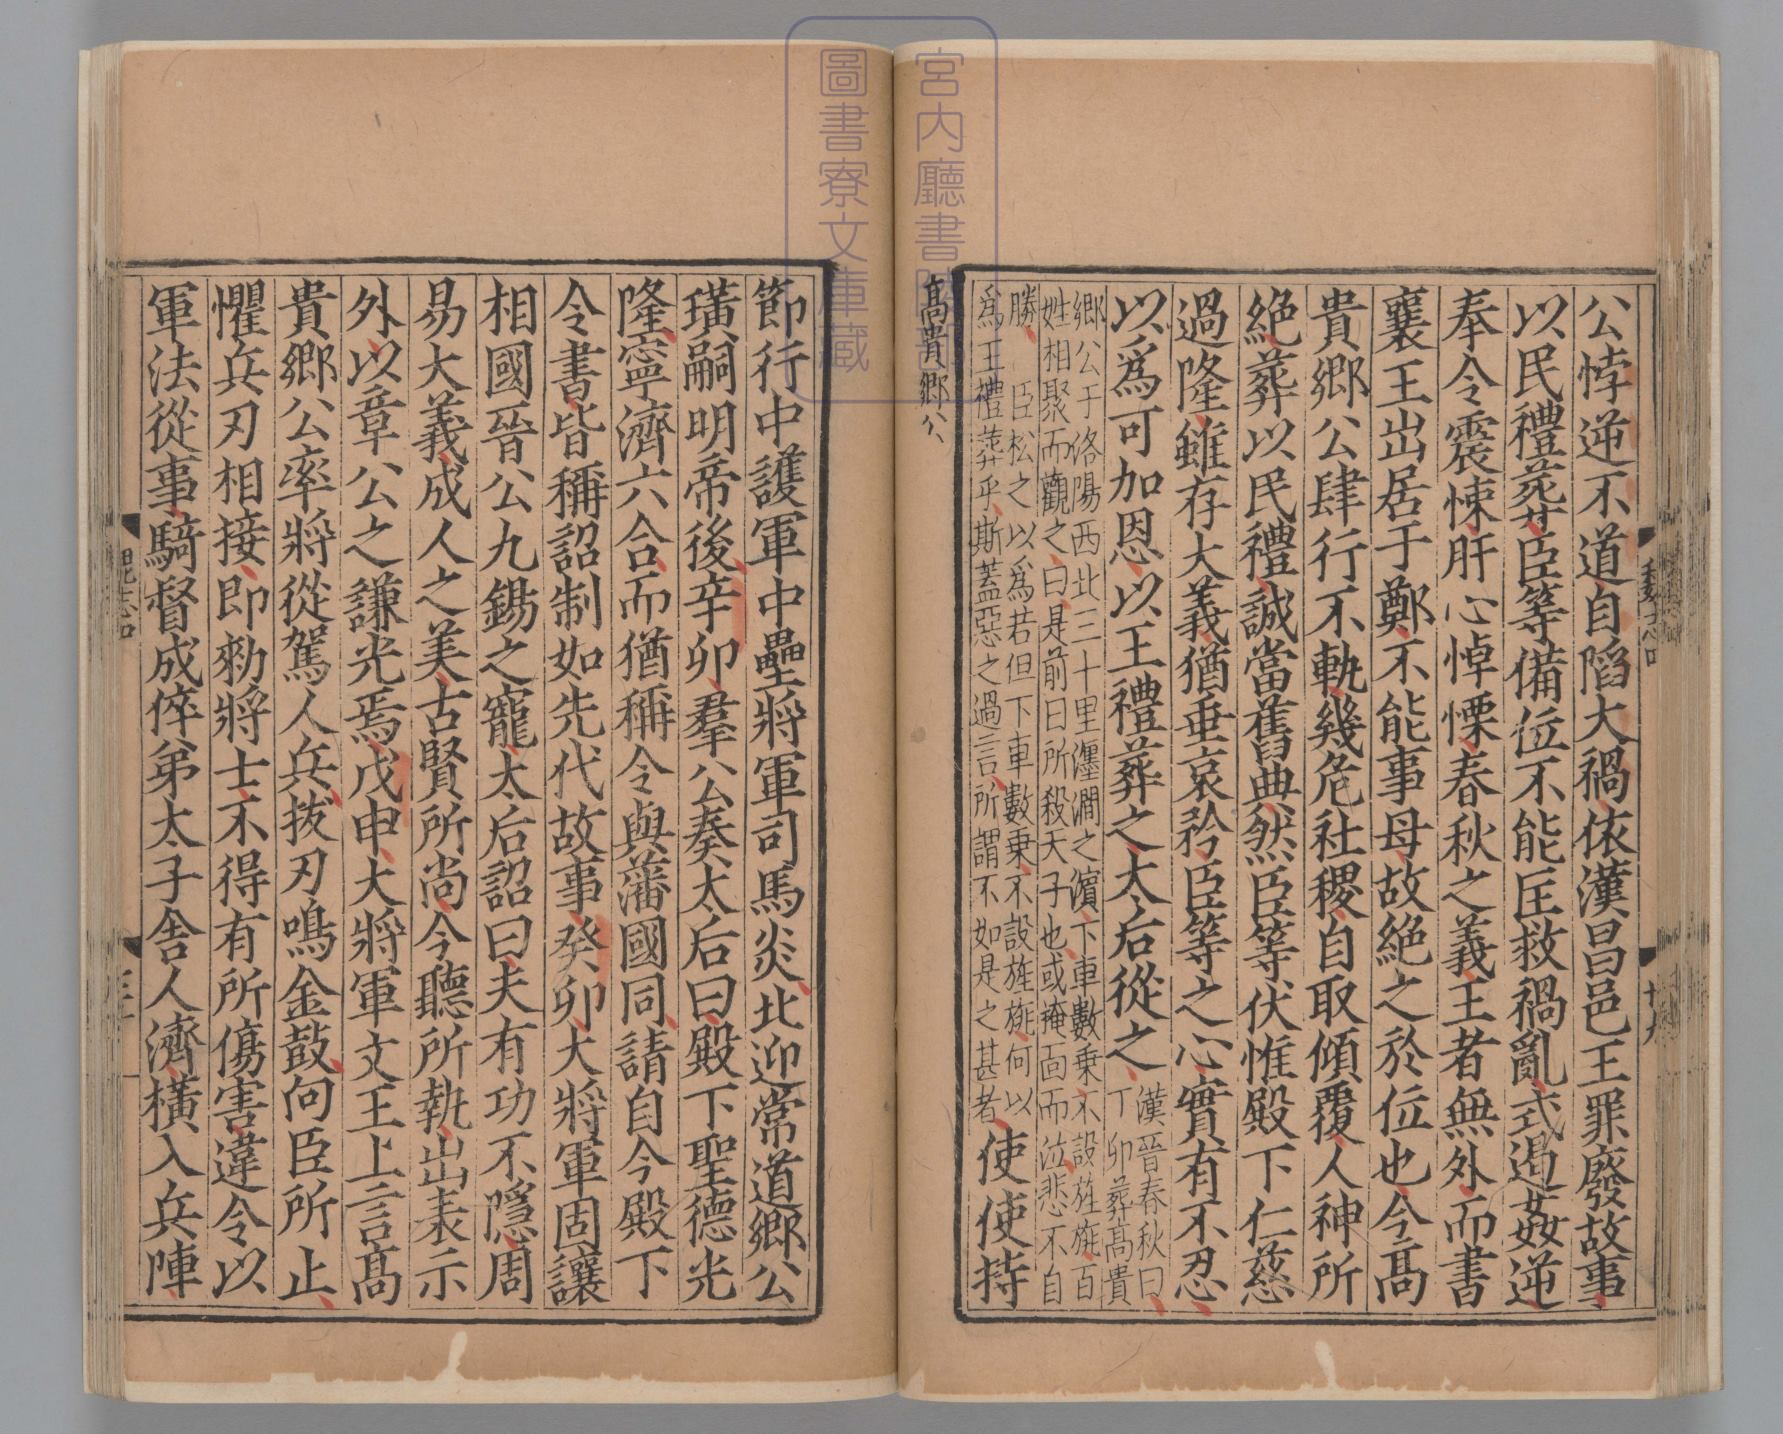 公悖逆不道自陷大禍依漢昌邑王罪廢故事
以民禮葬臣等備位不能匡救禍亂式遏姦逆
奉令震悚肝心悼慄春秋之義王者無外而書
襄王出居于鄭不能事母故絶之於位也今髙
貴鄉公肆行不軌幾危社稷自取傾覆人神所
絶葬以民禮誠當舊典然臣等伏惟殿下仁慈
過隆雖存大義猶垂哀矜臣等之心實有不忍
以爲可加恩以王禮葬之太后從之
漢晉春秋曰
丁卯葬髙貴
鄉公于洛陽西北三十里瀍澗之濵下車數乗不設旌旐百
姓相聚而觀之曰是前日所殺天子也或掩面而泣悲不自
勝
臣松之以爲若但下車數乗不設旌旐何以
爲王禮葬乎斯蓋惡之過言所謂不如是之甚者
使使持
髙貴鄉公
節行中護軍中壘將軍司馬炎北迎常道鄉公
璜嗣明帝後辛卯羣公奏太后曰殿下聖德光
隆寧濟六合而猶稱令與藩國同請自今殿下
令書皆稱詔制如先代故事癸卯大將軍固讓
相國晉公九錫之寵太后詔曰夫有功不隱周
易大義成人之美古賢所尚今聽所執出表示
外以章公之謙光焉戊申大將軍文王上言髙
貴鄉公率將從駕人兵拔刃鳴金鼓向臣所止
懼兵刃相接即勑將士不得有所傷害違令以
軍法從事騎督成倅弟太子舎人濟橫入兵陣
宮内廳書陵部
圖書寮文庫藏